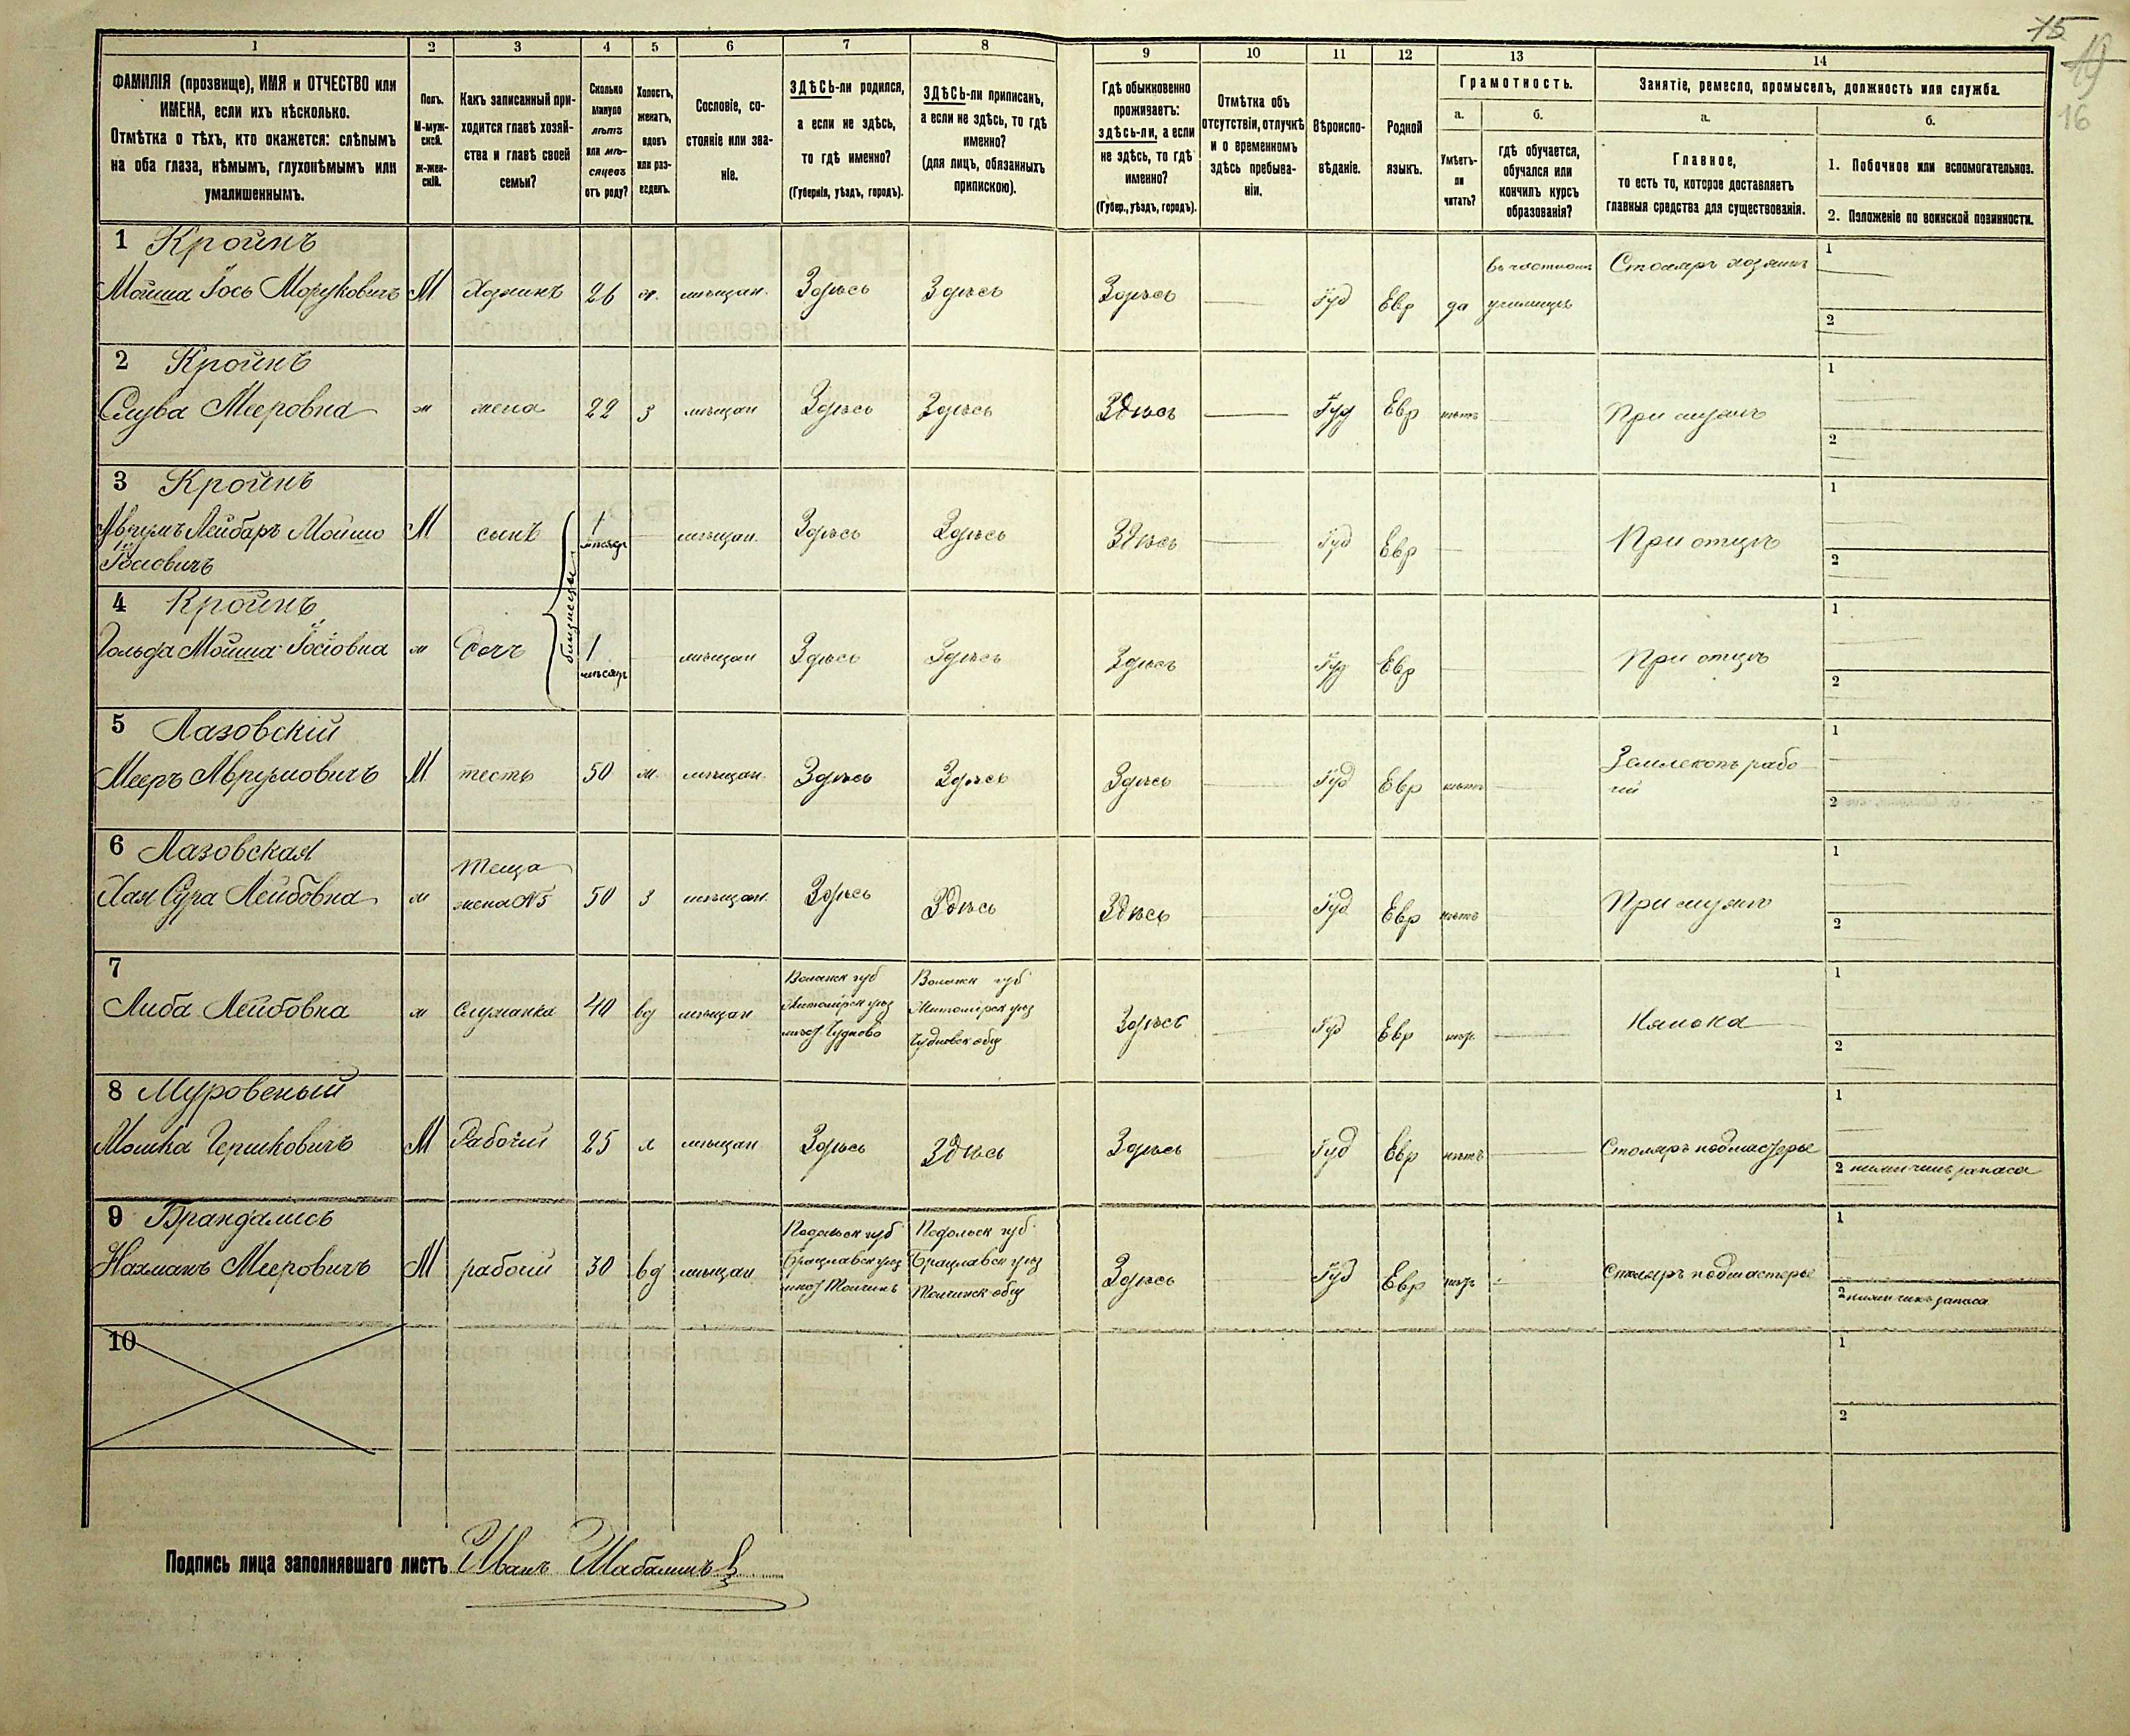 15
19
16
1 2 3 4 5 6 7 8 9 10 11 12 13 14
ФАМИЛІЯ (прозвище), ИМЯ и ОТЧЕСТВО или
ИМЕНА, если ихъ нѣсколько.
Отмѣтка о тѣхъ, кто окажется: слѣпымъ
на оба глаза, нѣмымъ, глухонѣмымъ или
умалишеннымъ.
Полъ.
М-муж-
ской.
Ж-жен-
скій.
Какъ записанный при-
ходится главѣ хозяй-
ства и главѣ своей
семьи?
Сколько
минуло
лѣтъ
или мѣ-
сяцевъ
отъ роду?
Холостъ,
женатъ,
вдовъ
или раз-
веденъ.
Сословіе, со-
стояніе или зва-
ніе.
ЗДѢСЬ-ли родился,
а если не здѣсь,
то гдѣ именно?
(Губернія, уѣздъ, городъ).
ЗДѢСЬ-ли приписанъ,
а если не здѣсь, то гдѣ
именно?
(для лицъ, обязанныхъ
припискою).
Гдѣ обыкновенно
проживаетъ:
здѣсь-ли, а если
не здѣсь, то гдѣ
именно?
(Губер., уѣздъ, городъ).
Отмѣтка объ
отсутствіи, отлучкѣ
и о временномъ
здѣсь пребыва-
ніи.
Вѣроиспо-
вѣданіе.
Родной
языкъ.
Грамотность.
а.
Умѣетъ-
ли
читать?
б.
гдѣ обучается,
обучался или
кончилъ курсъ
образованія?
Занятіе, ремесло, промыселъ, должность или служба.
а.
Главное,
то есть то, которое доставляетъ
главныя средства для существованія.
б.
1. Побочное или вспомогательное.
2. Положеніе по воинской повинности.
1 Кройнъ
Мойша Іось Мордковичъ М Хозяинъ 26 ж. мѣщан. Здѣсь Здѣсь Здѣсь Іуд Евр да въ частномъ училищѣ Столяръ хозяинъ
1
2
2 Кройнъ
Слува Мееровна ж жена 22 з мѣщан Здѣсь Здѣсь Здѣсь Іуд Евр нѣтъ При мужѣ
1
2
3 Кройнъ
Аврумъ Лейбаръ Мойшо М сынъ 1 мѣсяц мѣщан. Здѣсь Здѣсь Здѣсь Іуд Евр При отцѣ
Іосіовичъ
близнецы
1
2
4 Кройнъ
Гольда Мойша Іосіовна ж Дочь 1 мѣсяц мѣщан Здѣсь Здѣсь Здѣсь Іуд Евр При отцѣ
1
2
5 Лазовскій
Мееръ Аврумовичъ М тесть 50 ж. мѣщан. Здѣсь Здѣсь Здѣсь Іуд Евр нѣтъ Землекопъ рабо
чій
1
2
6 Лазовская
Хая Сура Лейбовна ж Теща
жена №5 50 з мѣщан. Здѣсь Здѣсь Здѣсь Іуд Евр нѣтъ При мужѣ
1
2
7
Либа Лейбовна ж служанка 40 вд мѣщан
Волынск губ
Житомірск уѣз
мѣс Чудново
Волынск губ
Житомірск уѣз
Чудновск общ
Здѣсь Іуд Евр нѣт. Нянька
1
2
8 Муровеный
Мошка Гершковичъ М Рабочій 25 х мѣщан Здѣсь Здѣсь Здѣсь Іуд Евр нѣтъ Столяръ подмастерье
1
2 нижн чинъ запаса
9 Брандалисъ
Нахманъ Мееровичъ М рабочій 30 вд мѣщан
Подольск губ
Брацлавск уѣз
мѣс Тульчинъ
Подольск губ
Брацлавск уѣз
Тульчинск общ
Здѣсь Іуд Евр нѣт Столяръ подмастерье
1
2 нижн чинъ запаса
10
1
2
Подпись лица заполнявшаго листъ Иванъ